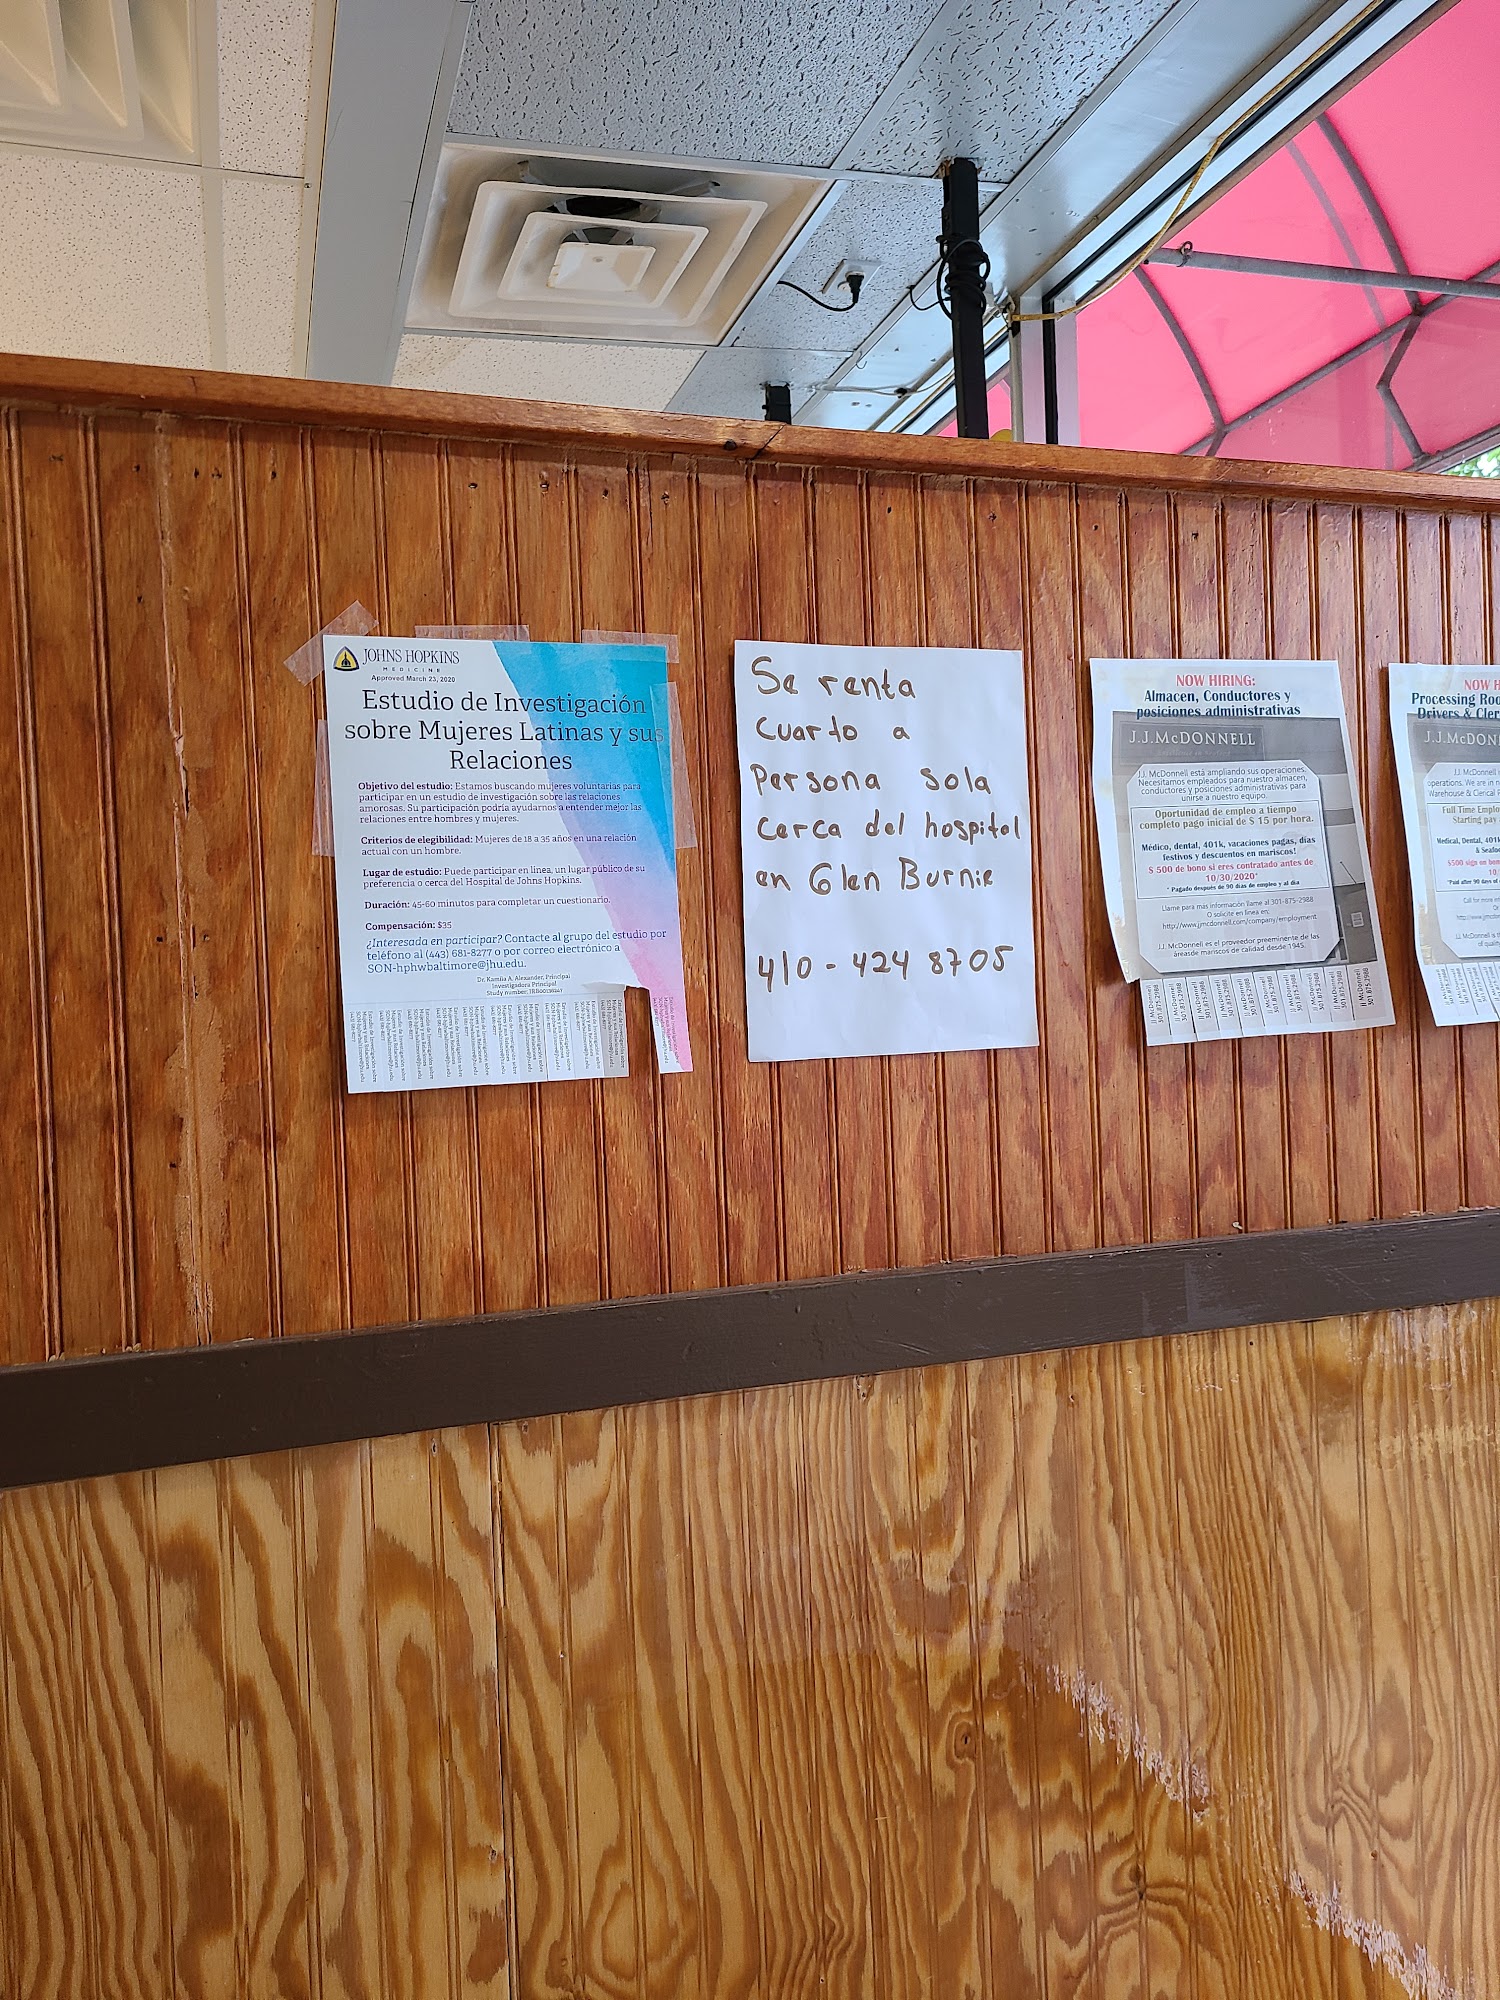 JOHNS HOPKINS
MEDICINE
Approved March 23, 2020
Estudio de Investigación
sobre Mujeres Latinas y sus
Relaciones
Objetivo del estudio: Estamos buscando mujeres voluntarias para
participar en un estudio de investigación sobre las relaciones
amorosas. Su participación podría ayudarnos a entender mejor las
relaciones entre hombres y mujeres.
Criterios de elegibilidad: Mujeres de 18 a 35 años en una relación
actual con un hombre.
Lugar de estudio: Puede participar en linea, un lugar público de su
preferencia o cerca del Hospital de Johns Hopkins.
Duración: 45-60 minutos para completar un cuestionario.
Compensación: $35
¿Interesada en participar? Contacte al grupo del estudio por
teléfono al (443) 681-8277 o por correo electrónico a
SON-hphwbaltimore@jhu.edu.
Dr. Kamila A. Alexander, Principal
Investigadora Principal
Study number:
Se renta
Cuarto a
Persona sola
Cerca del hospital
en Glen Burnie
410-424 8705
NOW HIRING:
Almacen, Conductores y
posiciones administrativas
J.J. MCDONNELL
J.J. McDonnell está ampliando sus operaciones.
Necesitamos empleados para nuestro almacen,
conductores y posiciones administrativas para
unirse a nuestro equipo.
Oportunidad de empleo a tiempo
completo pago inicial de $ 15 por hora.
Médico, dental, 401k, vacaciones pagas, días
festivos y descuentos en mariscos!
$ 500 de bono si eres contratado antes de
10/30/2020*
* Pagado después de 90 dias de empleo y al dia
Llame para mas información llame al 301-875-2988
O solicite en linea en:
http://www.jjmcdonnell.com/company/employment
J.J. McDonnell es el proveedor preeminente de las
áreasde mariscos de calidad desde 1945.
JJ McDonnell
301.875.2988
NOW H
Processing Roo
Drivers & Cler
J.J. MCDON
J.J. McDonnell
operations. We are in
Warehouse & Clerical
Full Time Emplo
Starting pay
Medical, Dental, 401k
& Seafoo
$500 sign on bon
10